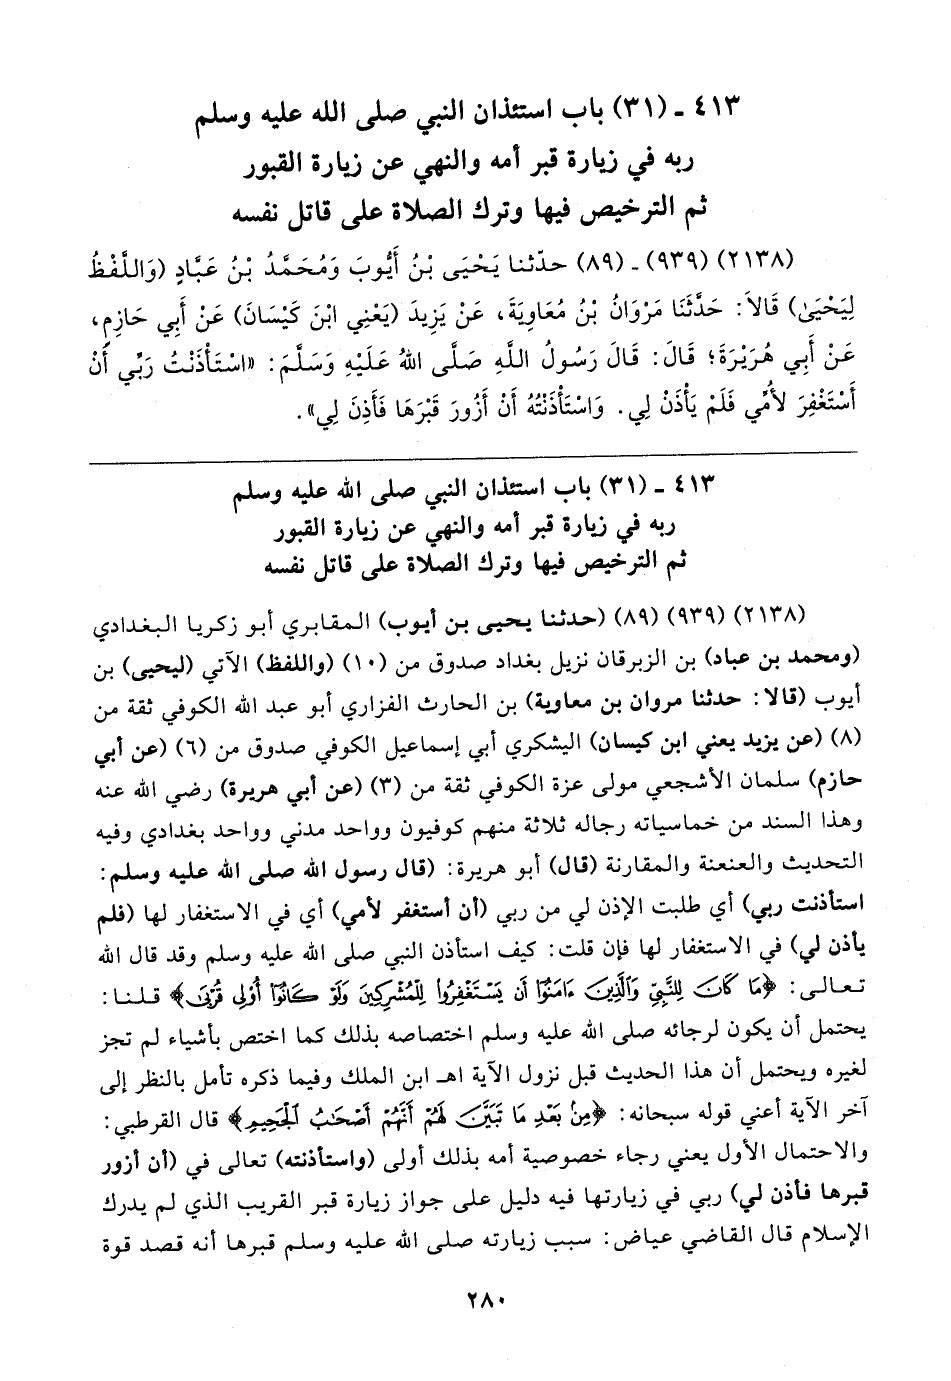 ٤١٣ ـ (٣١) باب استئذان النبي صلى الله عليه وسلم
ربه في زيارة قبر أمه والنهي عن زيارة القبور
ثم الترخيص فيها وترك الصلاة على قاتل نفسه
(٢١٣٨) (٩٣٩) ـ (٨٩) حدّثنا يَحْيَى بْنُ أَيُّوبَ وَمُحَمَّدُ بْنُ عَبَّادٍ (وَاللَّفْظُ
لِيَحْيَىٰ) قَالاَ: حَدَّثَنَا مَرْوَانُ بْنُ مُعَاوِيَةَ، عَنْ يَزِيدَ (يَعْنِي ابْنَ كَيْسَانَ) عَنْ أَبِي حَازِمٍ،
عَنْ أَبِي هُرَيْرَةَ؛ قَالَ: قَالَ رَسُولُ اللَّهِ صَلَّى اللهُ عَلَيْهِ وَسَلَّمَ: «اسْتَأْذَنْتُ رَبِّي أَنْ
أَسْتَغْفِرَ لأُمِّي فَلَمْ يَأْذَنْ لِي. وَاسْتَأْذَنْتُهُ أَنْ أَزُورَ قَبْرَهَا فَأَذِنَ لِي».
٤١٣ ـ (٣١) باب استئذان النبي صلى الله عليه وسلم
ربه في زيارة قبر أمه والنهي عن زيارة القبور
ثم الترخيص فيها وترك الصلاة على قاتل نفسه
(٢١٣٨) (٩٣٩) (٨٩) (حدثنا يحيى بن أيوب) المقابري أبو زكريا البغدادي
(ومحمد بن عباد) بن الزبرقان نزيل بغداد صدوق من (١٠) (واللفظ) الآتي (ليحيى) بن
أيوب (قالا: حدثنا مروان بن معاوية) بن الحارث الفزاري أبو عبد الله الكوفي ثقة من
(٨) (عن يزيد يعني ابن كيسان) اليشكري أبي إسماعيل الكوفي صدوق من (٦) (عن أبي
حازم) سلمان الأشجعي مولى عزة الكوفي ثقة من (٣) (عن أبي هريرة) رضي الله عنه
وهذا السند من خماسياته رجاله ثلاثة منهم كوفيون وواحد مدني وواحد بغدادي وفيه
التحديث والعنعنة والمقارنة (قال) أبو هريرة: (قال رسول الله صلى الله عليه وسلم:
استأذنت ربي) أي طلبت الإذن لي من ربي (أن أستغفر لأمي) أي في الاستغفار لها (فلم
يأذن لي) في الاستغفار لها فإن قلت: كيف استأذن النبي صلى الله عليه وسلم وقد قال الله
تعالى: ﴿مَا كَانَ لِلنَّبِيِّ وَالَّذِينَ ءَامَنُوٓا أَن يَسْتَغْفِرُوا لِلْمُشْرِكِينَ وَلَوْ كَانُوٓا أُوْلِي قُرْبَىٰ﴾ قلنا:
يحتمل أن يكون لرجائه صلى الله عليه وسلم اختصاصه بذلك كما اختص بأشياء لم تجز
لغيره ويحتمل أن هذا الحديث قبل نزول الآية اهـ ابن الملك وفيما ذكره تأمل بالنظر إلى
آخر الآية أعني قوله سبحانه: ﴿مِنۢ بَعْدِ مَا تَبَيَّنَ لَهُمْ أَنَّهُمْ أَصْحَابُ الْجَحِيمِ﴾ قال القرطبي:
والاحتمال الأول يعني رجاء خصوصية أمه بذلك أولى (واستأذنته) تعالى في (أن أزور
قبرها فأذن لي) ربي في زيارتها فيه دليل على جواز زيارة قبر القريب الذي لم يدرك
الإسلام قال القاضي عياض: سبب زيارته صلى الله عليه وسلم قبرها أنه قصد قوة
٢٨٠